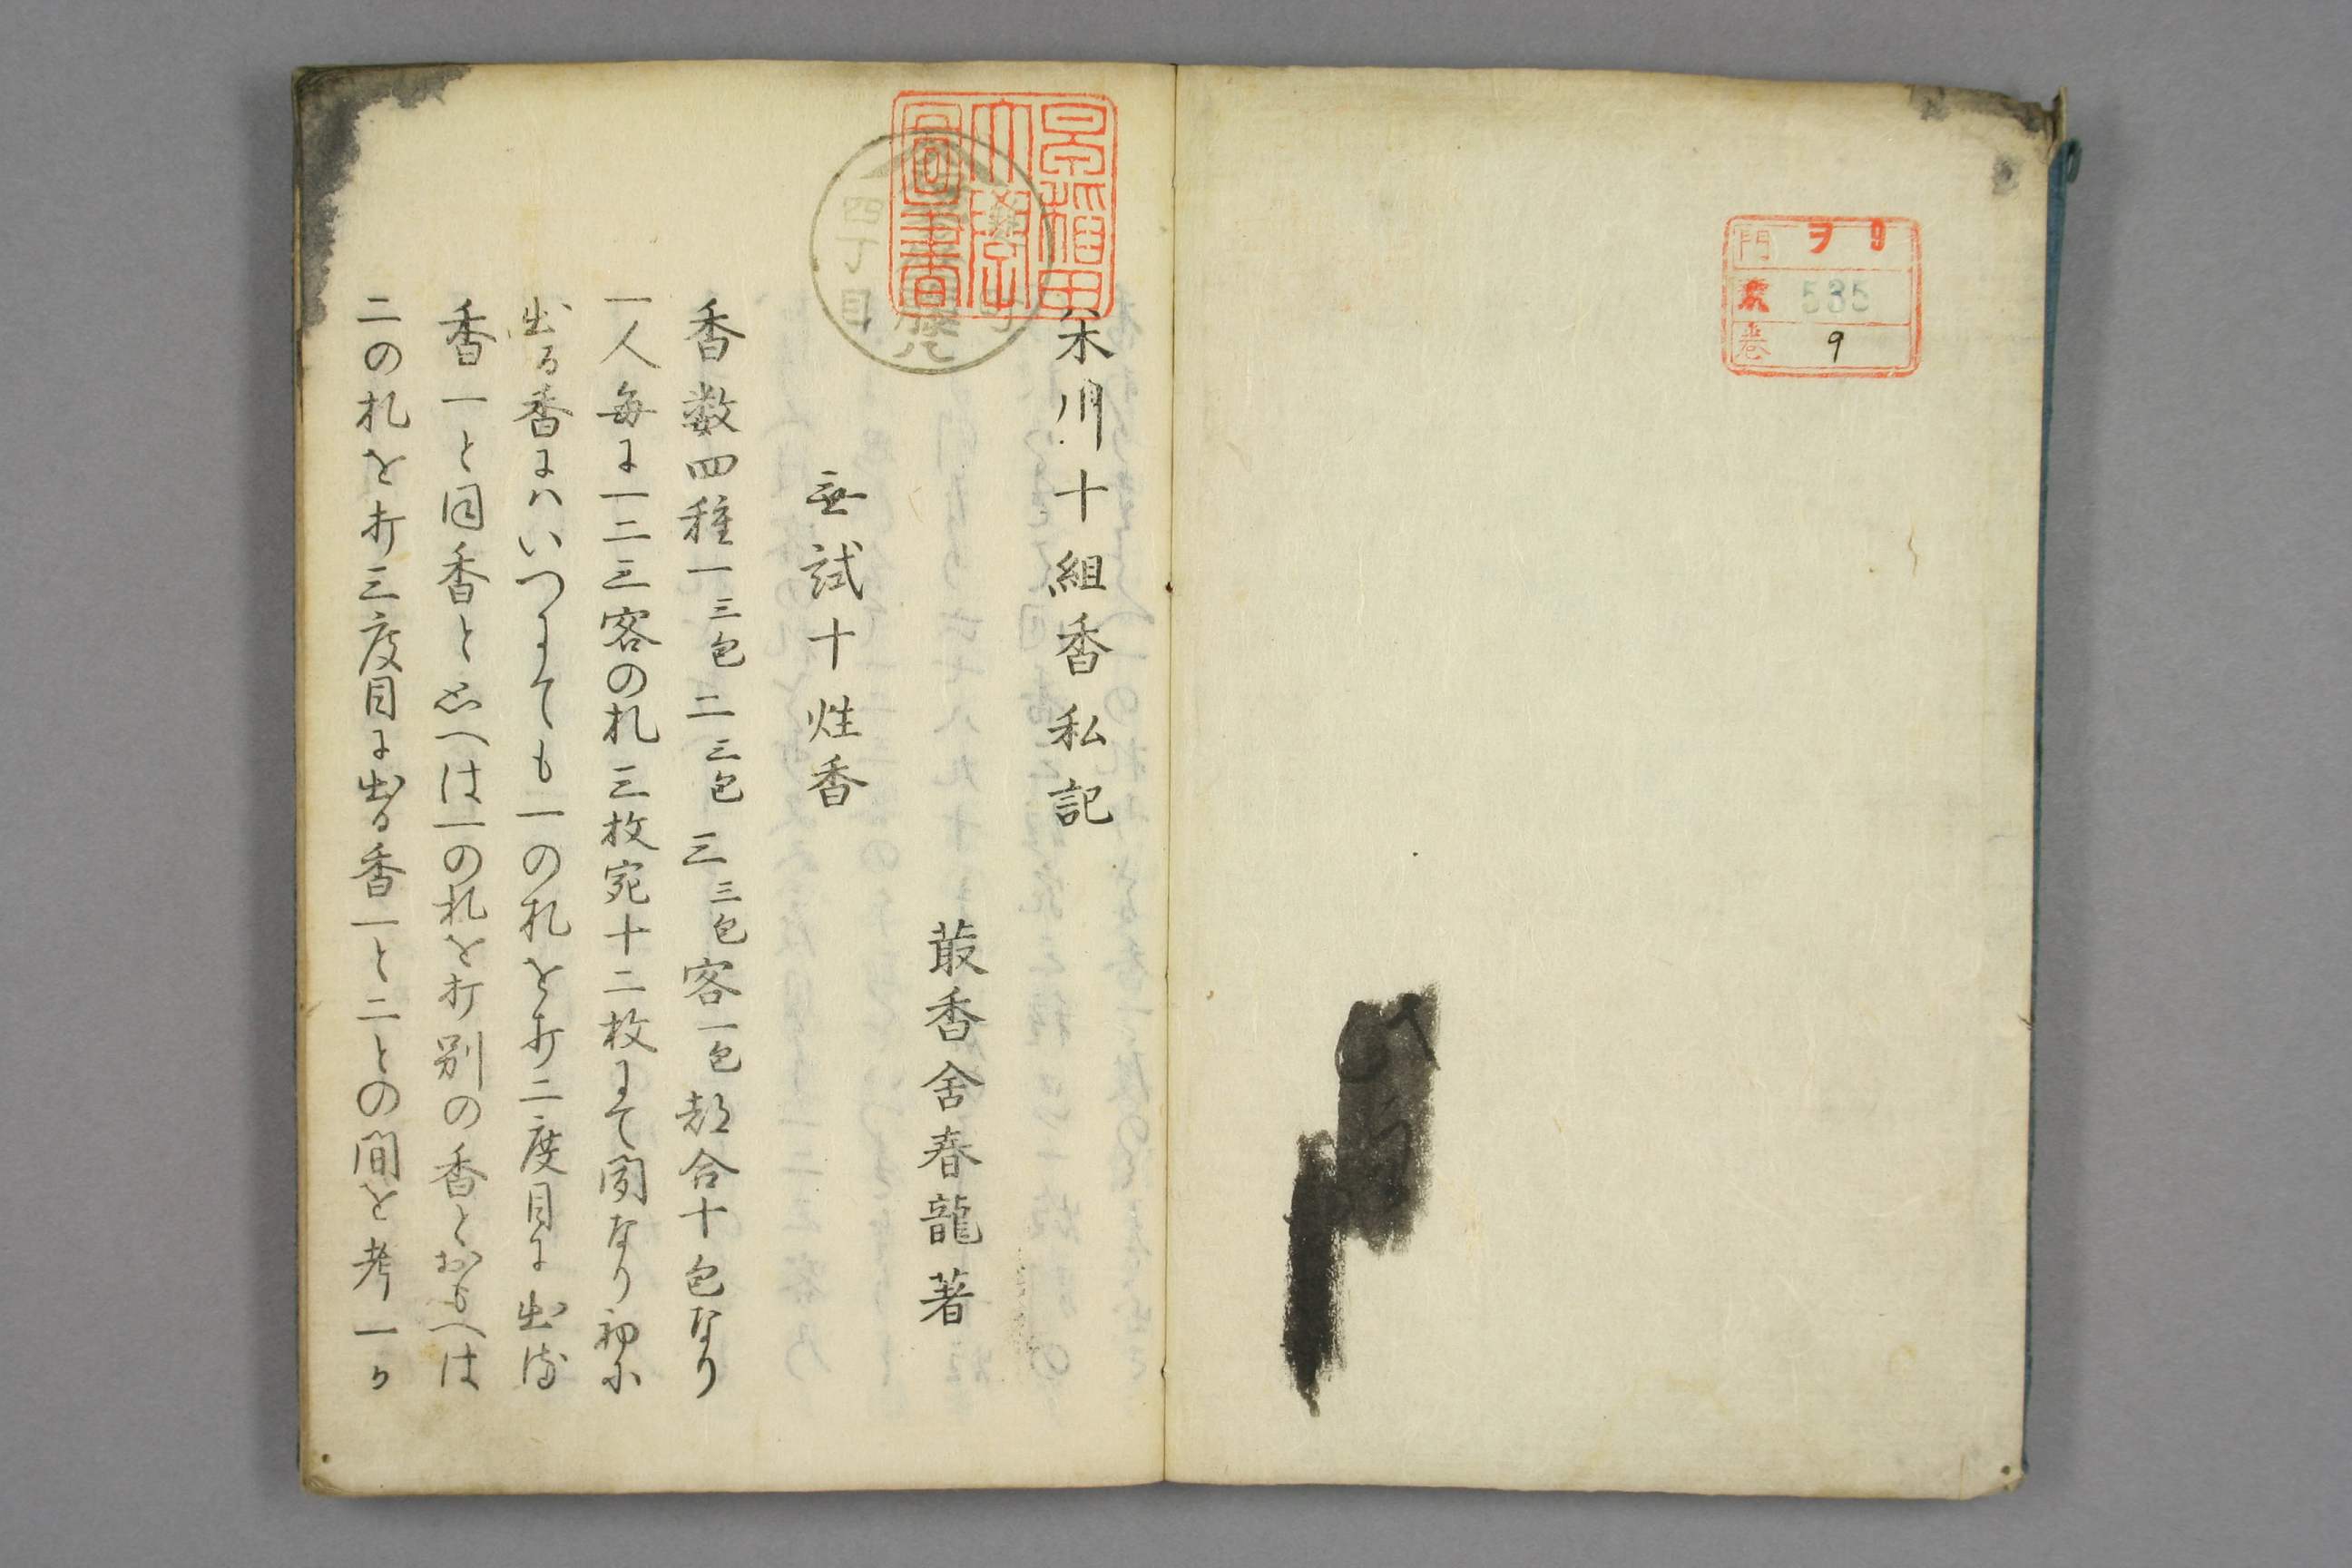 門 ヲ 9
535
巻 9
早稲田
大學
圖書
四丁目
米川十組香私記
叢香舎春龍著
無試十炷香
香数四種一三包二三包三三包客一包都合十包なり
一人毎に一二三客の札三枚宛十二枚にて聞なり初に
出る香にハいつにても一の札を打二度目に出る
香一と同香と思へは一の札を打別の香とおもへは
二の札を打三度目に出る香一と二との間を考一か